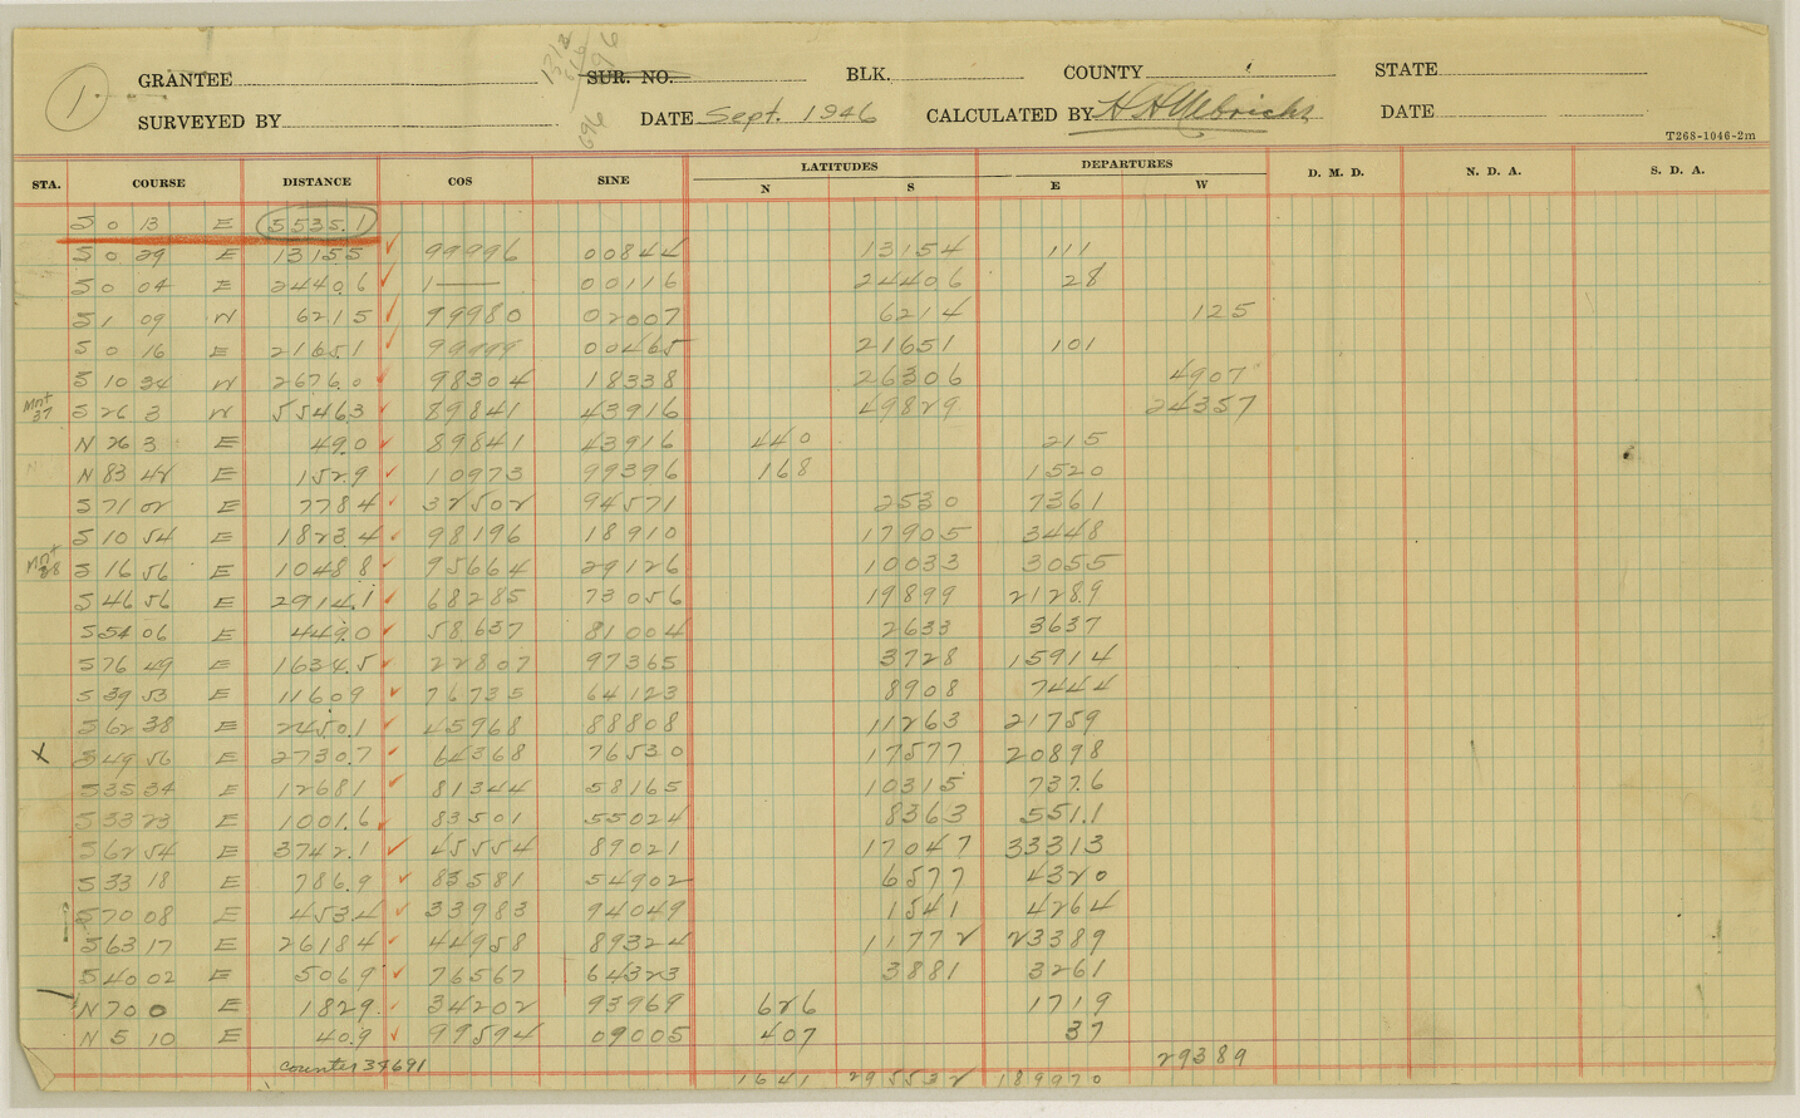 1
1313
616
696
696
GRANTEE SUR. NO. BLK. COUNTY STATE
SURVEYED BY DATE Sept. 1946 CALCULATED BY H H Ulbricht DATE
T268-1046-2m
STA. COURSE DISTANCE COS SINE LATITUDES N S DEPARTURES E W D. M. D. N. D. A. S. D. A.
S 0 13 E 5535.1
S 0 29 E 1315.5 ✓ 99996 00844 13154 111
S 0 04 E 2440.6 ✓ 1 — 00116 24406 28
S 1 09 W 621 5 ✓ 99980 02007 6214 125
S 0 16 E 2165.1 ✓ 99999 00465 21651 101
S 10 34 W 2676.0 ✓ 98304 18338 26306 4907
Mnt 37 S 26 3 W 5546.3 ✓ 89841 43916 49829 24357
N 26 3 E 49.0 ✓ 89841 43916 440 215
N 83 42 E 152.9 ✓ 10973 99396 168 1520
S 71 02 E 778 4 ✓ 32502 94571 2530 7361
S 10 54 E 1823.4 ✓ 98196 18910 17905 3448
Mnt 38 S 16 56 E 1048 8 ✓ 95664 29126 10033 3055
S 46 56 E 2914.1 ✓ 68285 73056 19899 21289
S 54 06 E 449.0 ✓ 58637 81004 2633 3637
S 76 49 E 1634.5 ✓ 22807 97365 3728 15914
S 39 53 E 1160 9 ✓ 76735 64123 8908 7444
S 62 38 E 2450.1 ✓ 45968 88808 11263 21759
X S 49 56 E 2730.7 ✓ 64368 76530 17577 20898
S 35 34 E 1268 1 ✓ 81344 58165 10315 737.6
S 33 23 E 1001.6 ✓ 83501 55024 8363 551.1
S 62 54 E 3742.1 ✓ 45554 89021 17047 33313
S 33 18 E 786.9 ✓ 83581 54902 6577 4320
S 70 08 E 453.4 ✓ 33983 94049 1541 4264
S 63 17 E 2618 4 ✓ 44958 89324 11772 23389
S 40 02 E 506 9 ✓ 76567 64323 3881 3261
N 70 0 E 182 9 ✓ 34202 93969 626 1719
N 5 10 E 40.9 ✓ 99594 09005 407 37
29389
counter 34691
1641 295532 189970